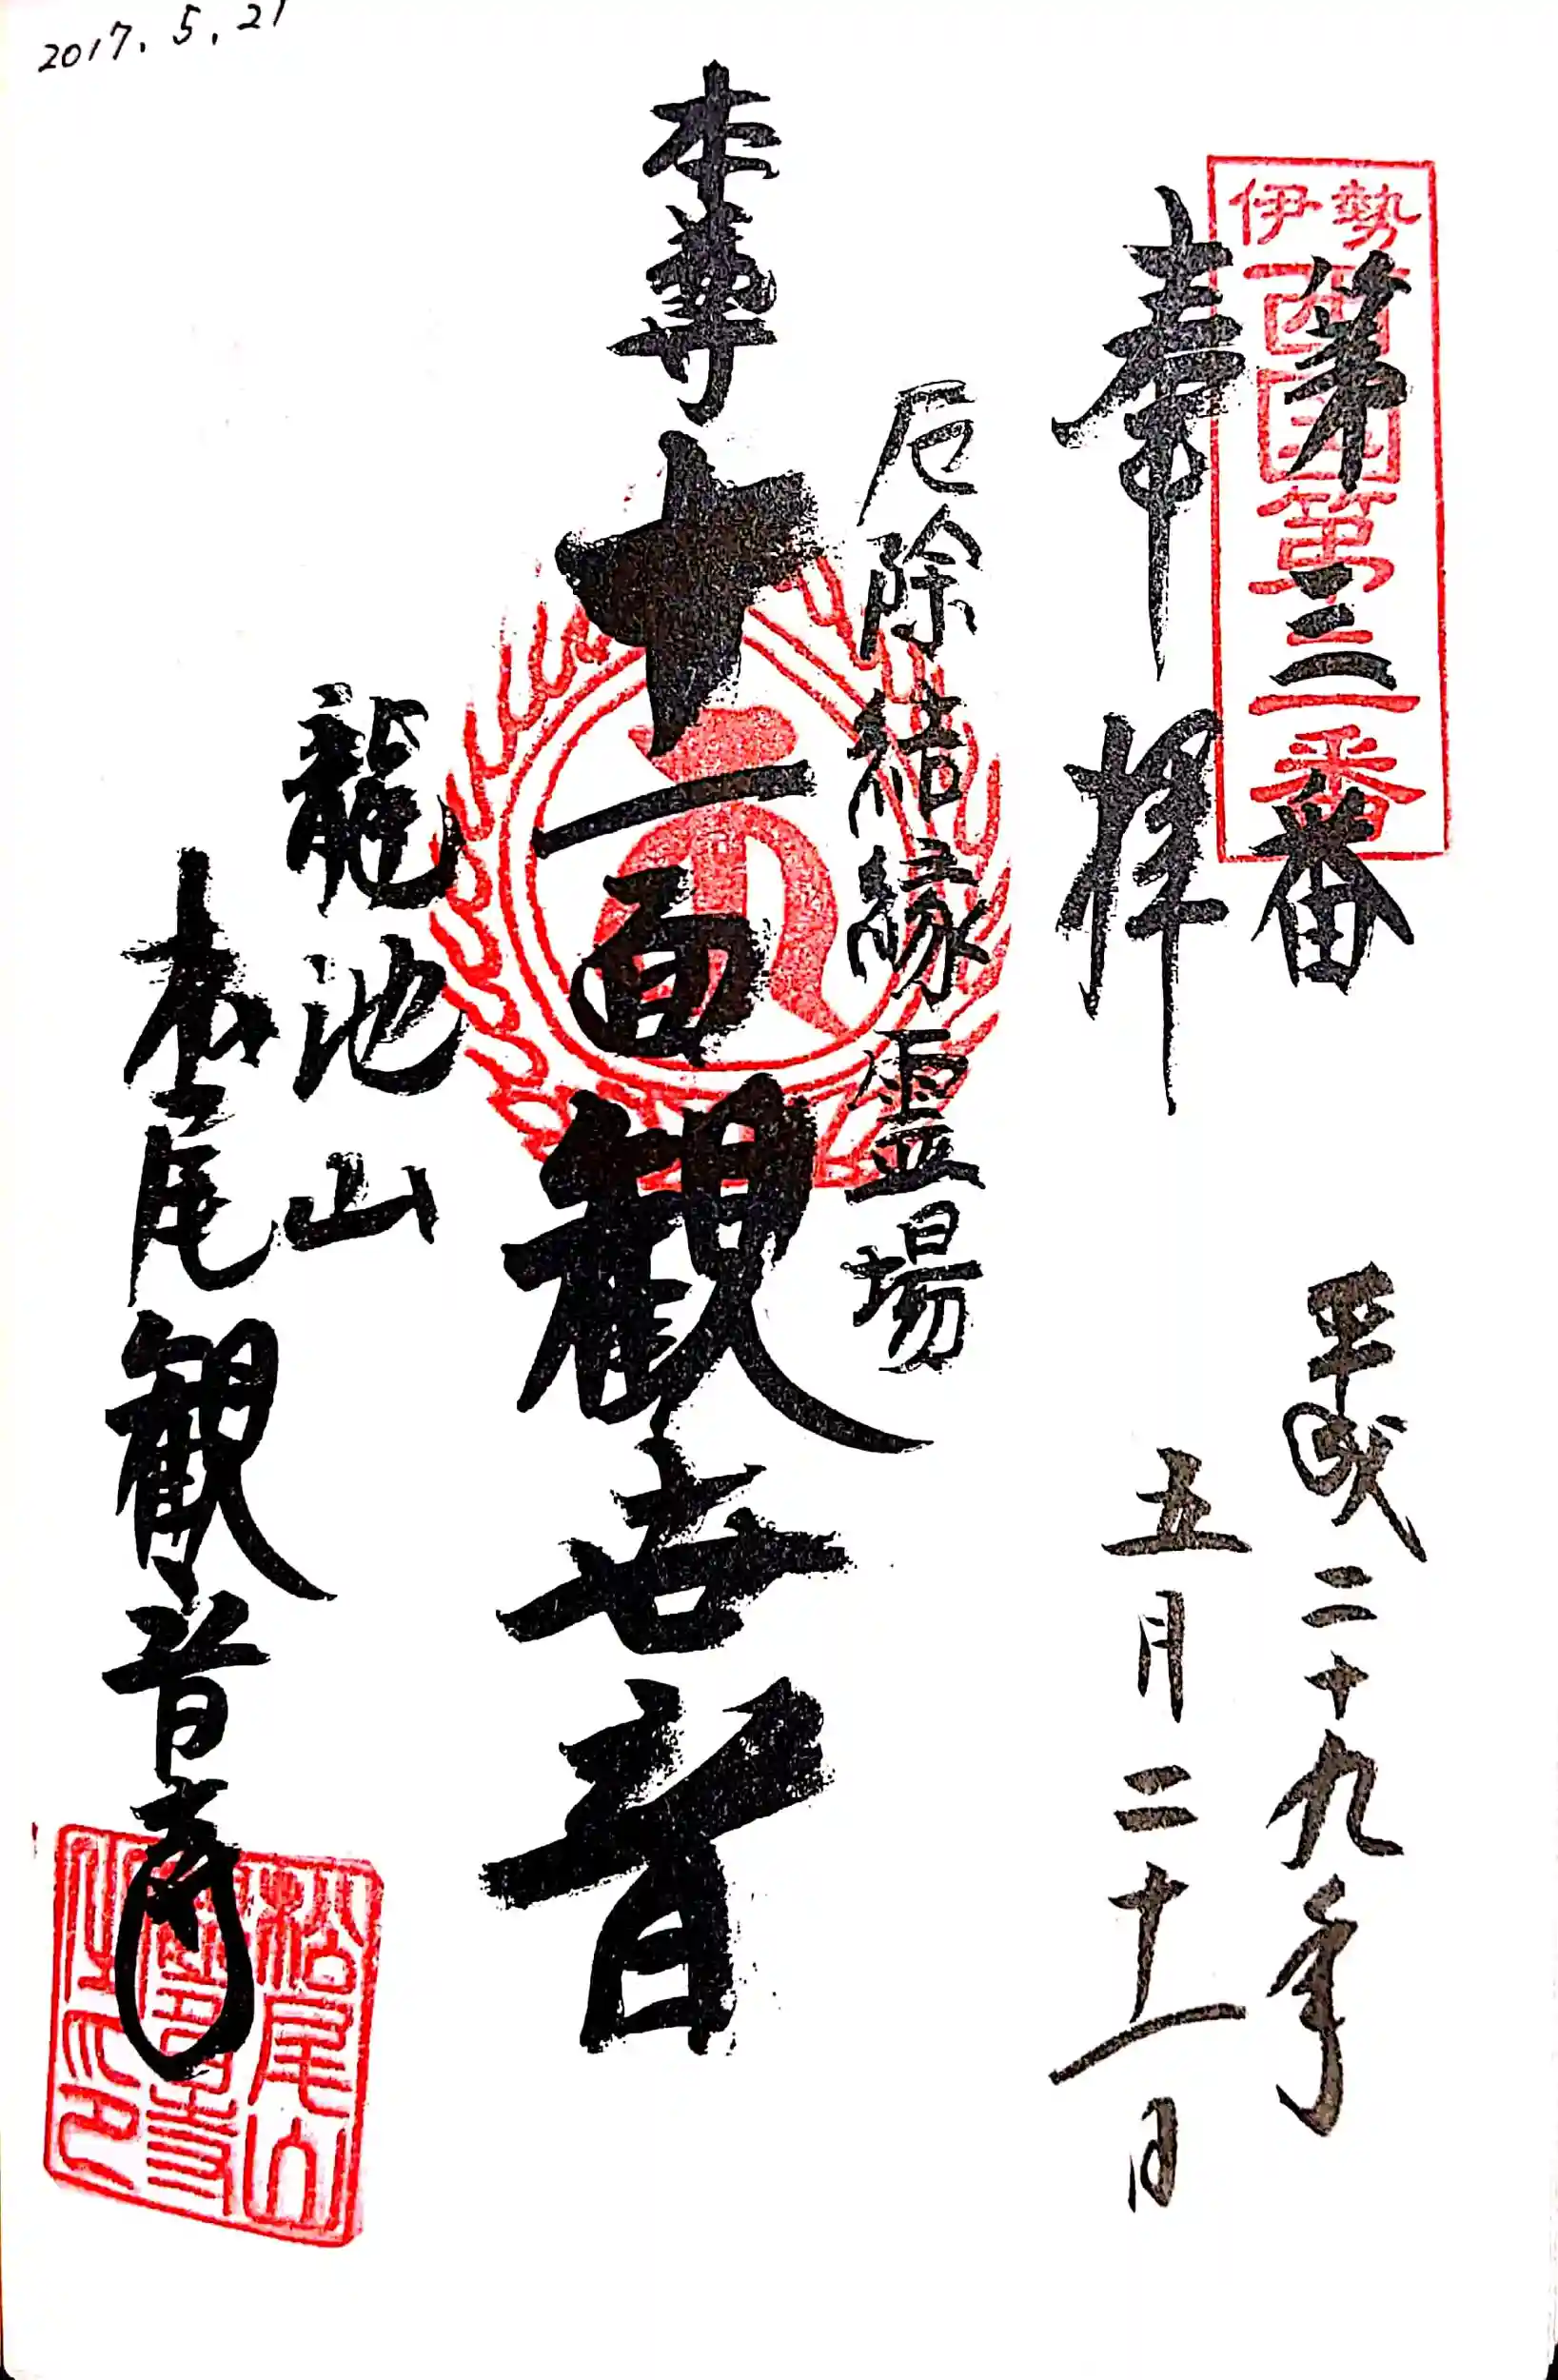 2017. 5. 21
伊勢
西国第三番
第三番
奉拝
平成二十九年
五月二十一日
厄除結縁霊場
本尊
十一面観世音
龍池山
松尾観音寺
松尾山
観音寺
之印